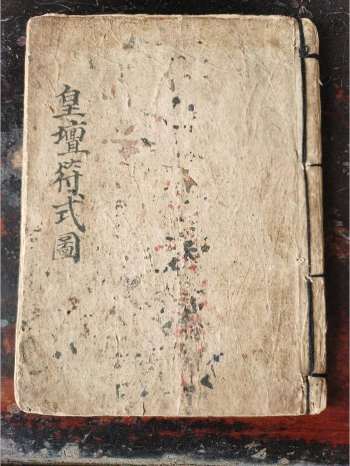 皇壇符式圖